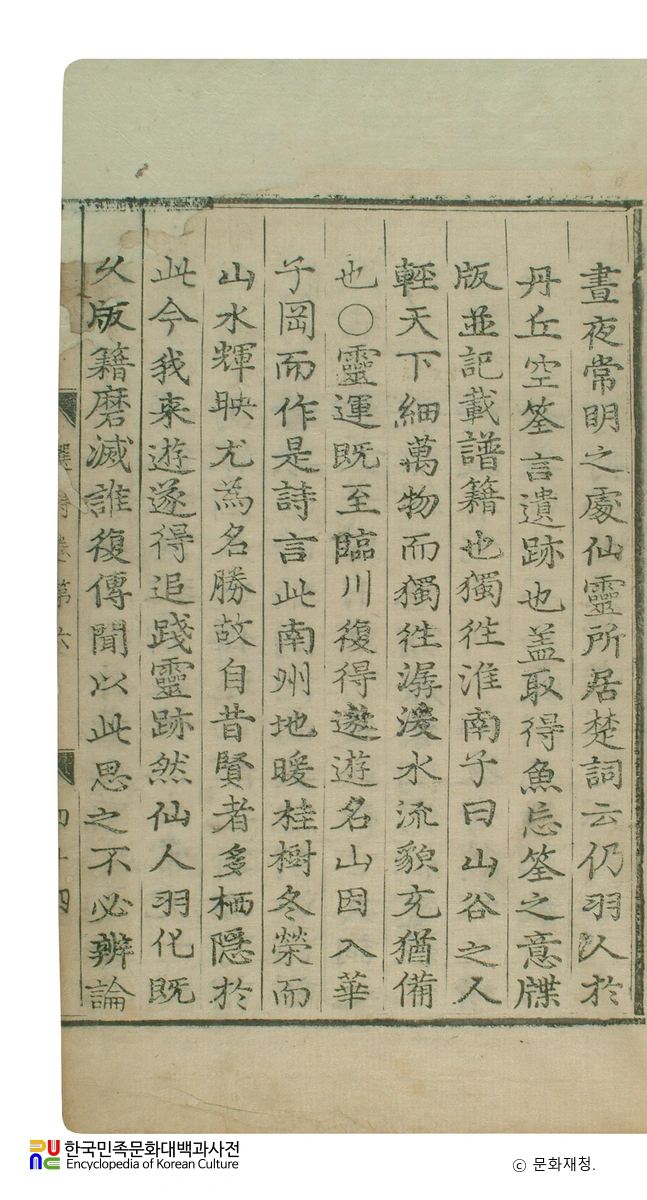 晝夜常明之處仙靈所居楚詞云仍羽人於
丹丘空筌言遺跡也盖取得魚忘筌之意牒
版並記載譜籍也獨徃淮南子曰山谷之人
輕天下細萬物而獨徃潺湲水流貌充猶備
也○靈運既至臨川復得遨遊名山因入華
子岡而作是詩言此南州地暖桂樹冬榮而
山水輝映尤為名勝故自昔賢者多栖隱於
此今我来遊遂得追踐靈跡然仙人羽化既
久版籍磨滅誰復傳聞以此思之不必辨論
選詩卷第六
四十四
한국민족문화대백과사전
Encyclopedia of Korean Culture
ⓒ 문화재청.